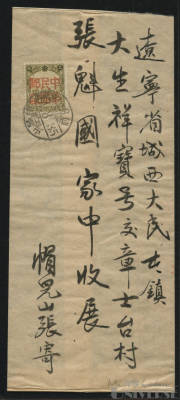 遼寧省城西大民屯鎮
大生祥寶号交章士台村
張魁國家中收展
帽兒山張寄
中華民郵
UNIVERSE